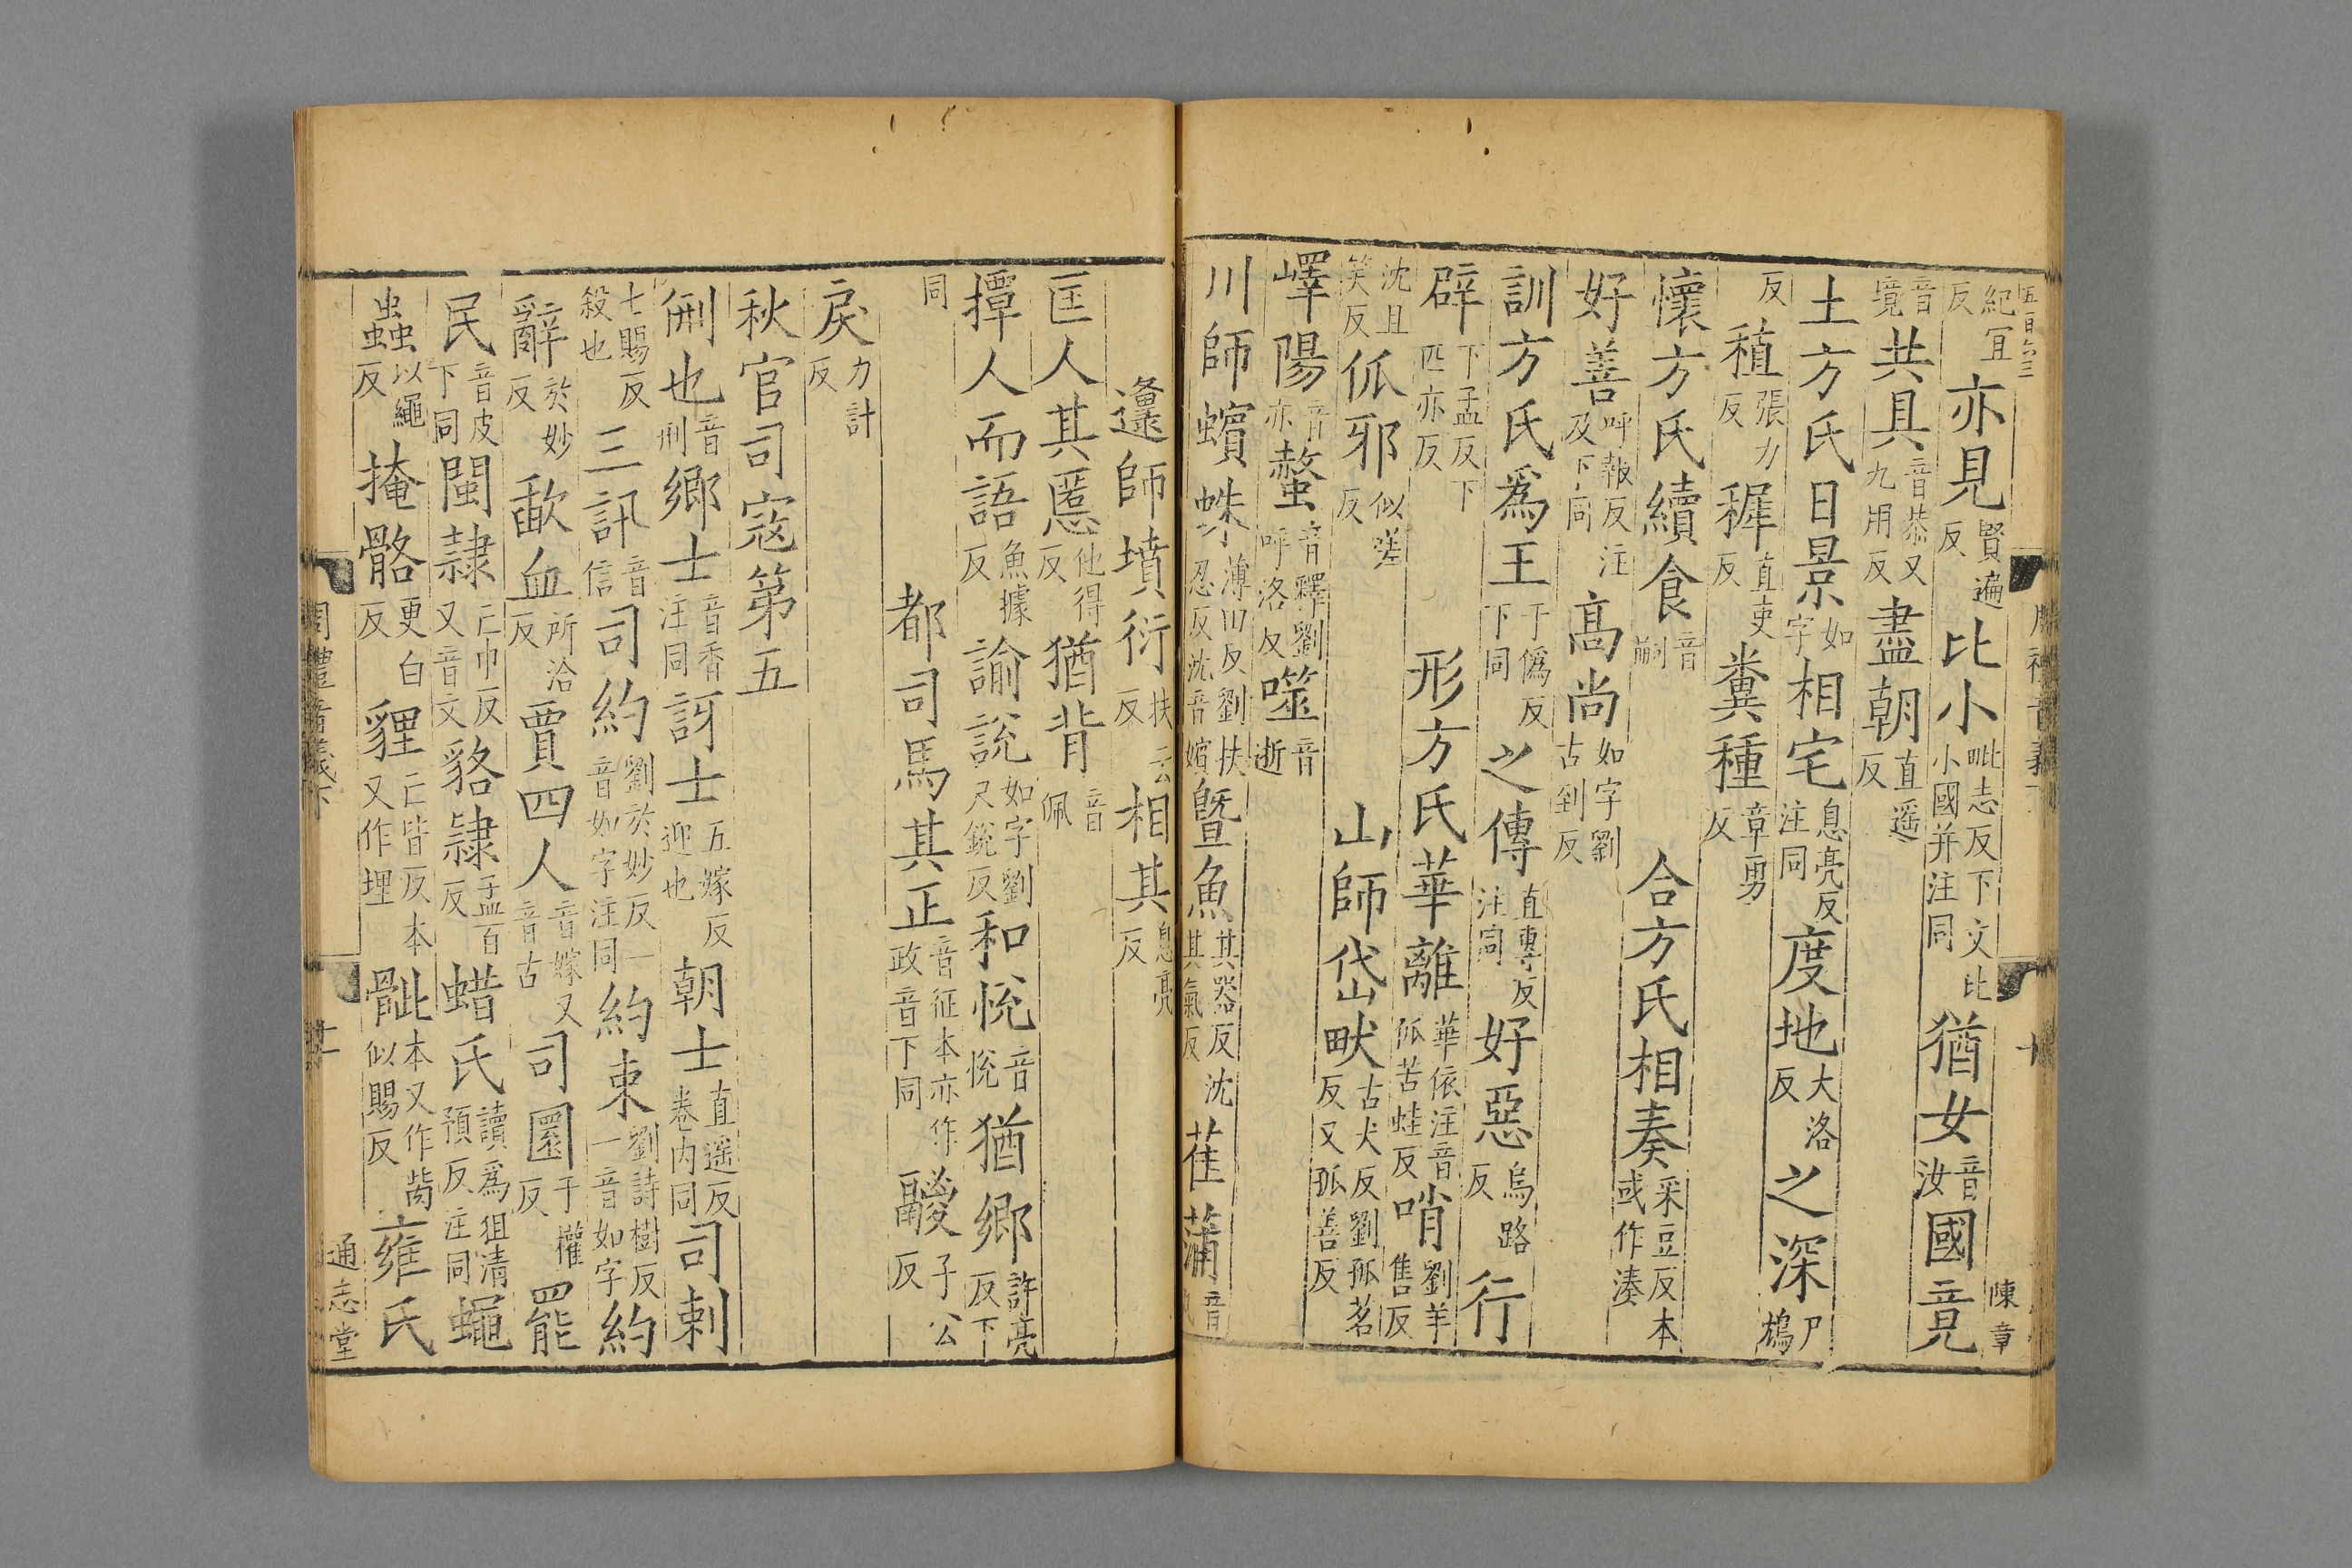 紀宜反亦見賢遍反比小毗志反下文比小國并注同猶女音汝國竟
音境共具音恭又九用反盡朝直遥反
土方氏日景如字相宅息亮反注同度地大洛反之深尸鴆
反稙張力反稺直吏反糞種章勇反
懷方氏續食音嗣 合方氏相奏采豆反本或作湊
好善呼報反注及下同高尚如字劉古到反
訓方氏爲王于僞反下同之傳直專反注同好惡烏路反行
辟下孟反下匹亦反 形方氏華離華依注音㐵苦蛙反哨劉羊售反
沈且笑反㐵邪似嗟反 山師岱畎古犬反劉孤茗反又孤善反
嶧陽音亦螫音釋劉呼洛反噬音逝
川師蠙蛛薄田反劉扶忍反沈音嬪曁魚其器反沈其氣反萑蒲音
陳章
邍師墳衍扶云反相其息亮反
匡人其慝他得反猶背音佩
撢人而語魚據反諭說如字劉尺銳反和悅音悅猶鄉許亮反下
同 都司馬其正音征本亦作政音下同鬷子公反
戾力計反
秋官司寇第五
㓝也音刑鄉士音香注同訝士五嫁反迎也朝士直遥反卷内同司刺
七賜反殺也三訊音信司約劉於妙反一音如字注同約束劉詩樹反一音如字約
辭於妙反歃血所洽反賈四人音嫁又音古司圜于權反罷
民音皮下同閩隷亡巾反又音文貉隷孟百反蜡氏讀爲狙清預反注同蠅
蟲以繩反掩骼更白反貍亡皆反本又作埋骴本又作胔似賜反雍氏
周禮音義下
通志堂